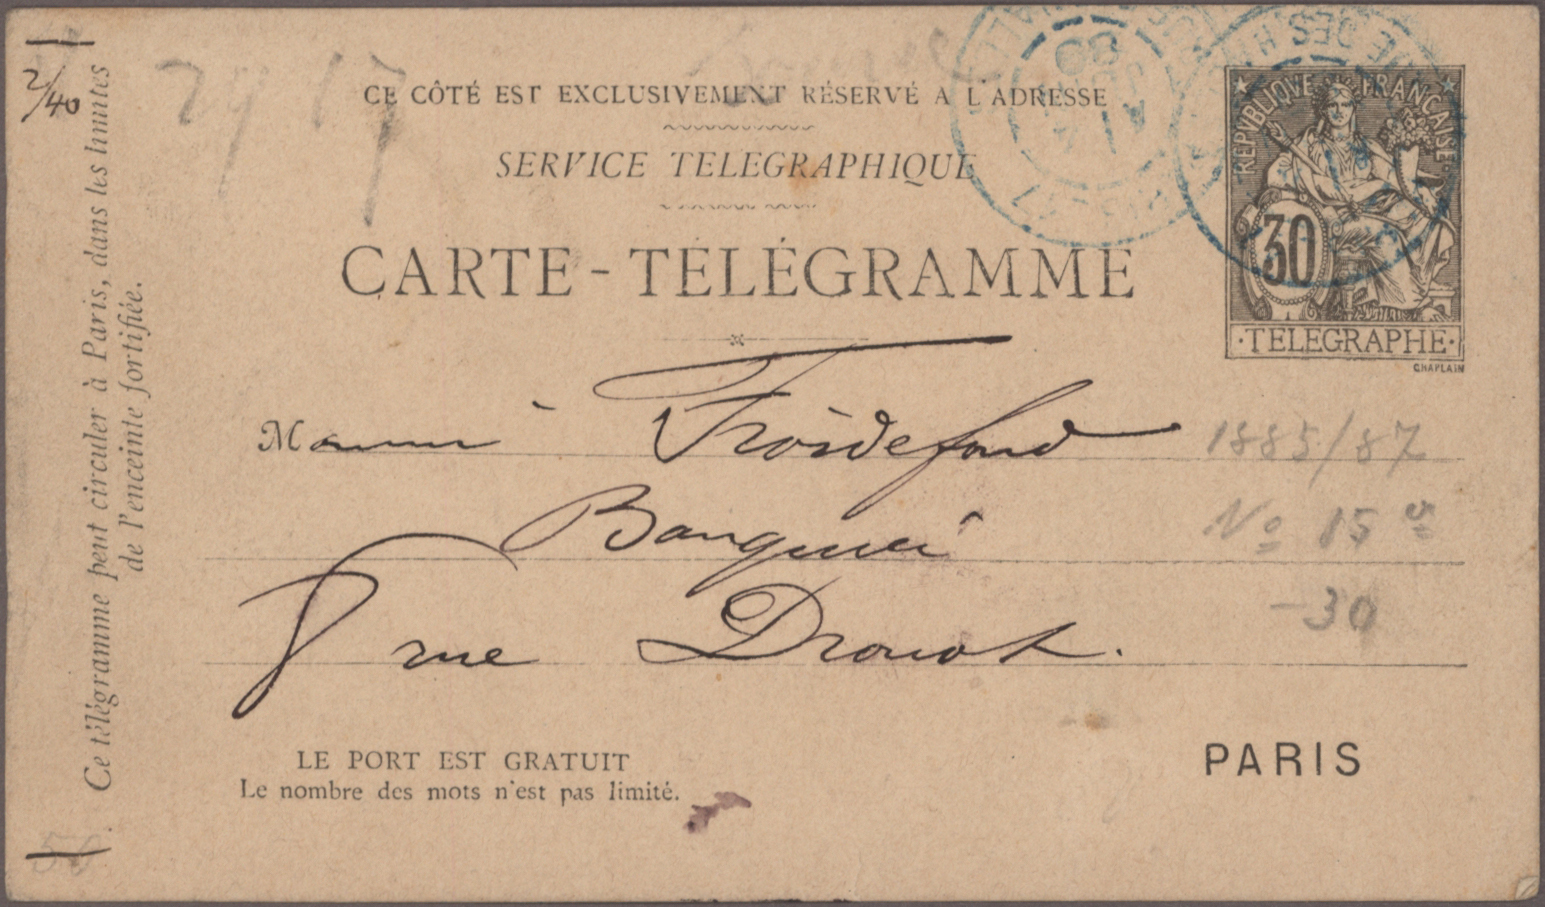 2/40
Ce télégramme peut circuler à Paris, dans les limites
de l'enceinte fortifiée.
CE CÔTÉ EST EXCLUSIVEMENT RÉSERVÉ A L'ADRESSE
SERVICE TELEGRAPHIQUE
CARTE-TÉLÉGRAMME
REPUBLIQUE FRANÇAISE
30
·TELEGRAPHE·
CHAPLAIN
Monsieur Froidefond
Banquier
8 rue Drouot.
1885/87
No 15
-30
LE PORT EST GRATUIT
Le nombre des mots n'est pas limité.
PARIS